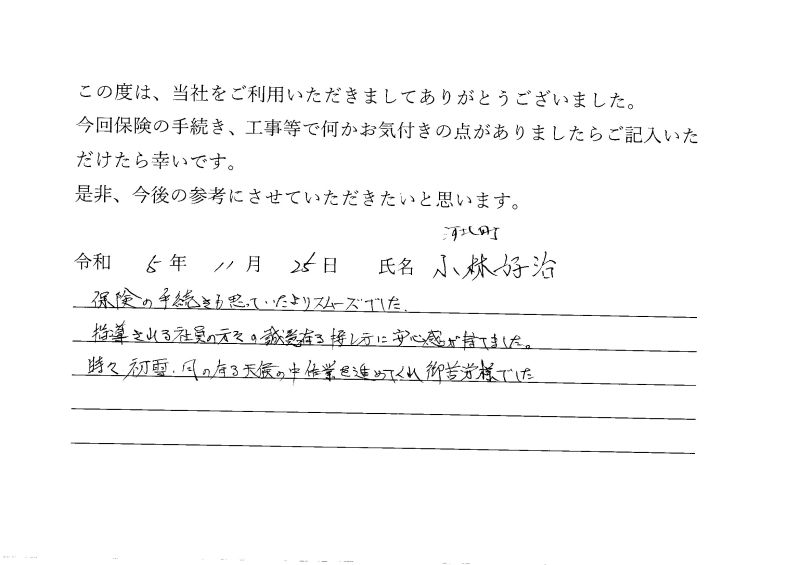 この度は、当社をご利用いただきましてありがとうございました。
今回保険の手続き、工事等で何かお気付きの点がありましたらご記入いた
だけたら幸いです。
是非、今後の参考にさせていただきたいと思います。
河北町
令和 5 年 11 月 25 日 氏名 小林好治
保険の手続きも思っていたよりスムーズでした。
指導される社員の方々の誠意有る接し方に安心感が持てました。
時々初雪・風の有る天候の中作業を進めてくれ御苦労様でした